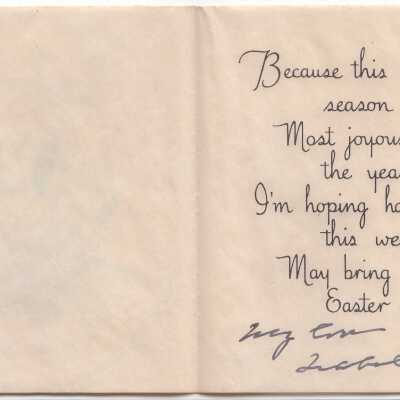 Because this
season
Most joyous
the yea
I'm hoping ha
this we
May bring
Easter
My Love
Isabel